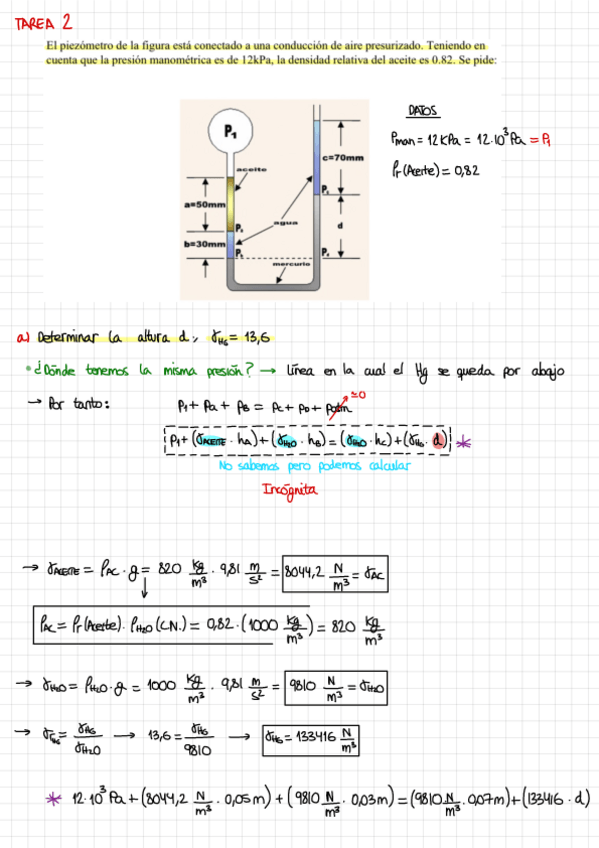 TAREA 2
El piezómetro de la figura está conectado a una conducción de aire presurizado. Teniendo en
cuenta que la presión manométrica es de 12kPa, la densidad relativa del aceite es 0.82. Se pide:
DATOS
Pman = 12 KPa = 12·10³ Pa = P₁
ρr (Aceite) = 0,82
P₁
aceite
c=70mm
a=50mm
agua
d
b=30mm
mercurio
a) Determinar la altura d, γHG = 13,6
• ¿Dónde tenemos la misma presión? → línea en la cual el Hg se queda por abajo
→ Por tanto: P₁ + PA + PB = PC + PD + Patm ≃0
P₁ + (γACEITE · hA) + (γH2O · hB) = (γH2O · hC) + (γHG · d) *
No sabemos pero podemos calcular
Incógnita
→ γACEITE = ρAC · g = 820 kg/m³ · 9,81 m/s² = 8044,2 N/m³ = γAC
ρAC = ρr (Aceite) · ρH2O (C.N.) = 0,82 · (1000 kg/m³) = 820 kg/m³
→ γH2O = ρH2O · g = 1000 kg/m³ · 9,81 m/s² = 9810 N/m³ = γH2O
→ γrHG = γHG/γH2O → 13,6 = γHG/9810 → γHG = 133416 N/m³
* 12·10³ Pa + (8044,2 N/m³ · 0,05 m) + (9810 N/m³ · 0,03 m) = (9810 N/m³ · 0,07 m) + (133416 · d)